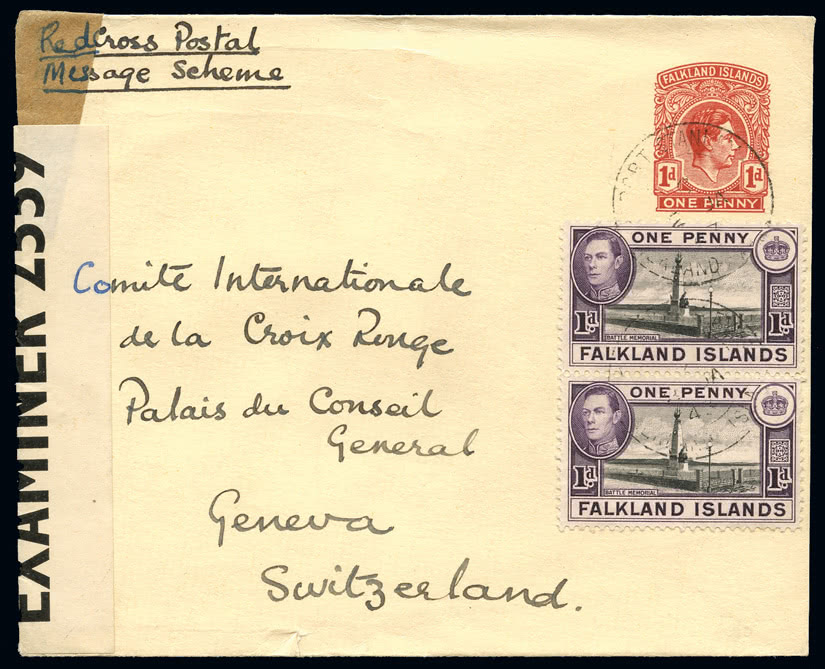 Red Cross Postal
Message Scheme
FALKLAND ISLANDS
1d 1d
ONE PENNY
PORT STANLEY
FALKLAND
EXAMINER 2559
ONE PENNY
1d. 1d.
BATTLE MEMORIAL
FALKLAND ISLANDS
ONE PENNY
1d. 1d.
BATTLE MEMORIAL
FALKLAND ISLANDS
Comité Internationale
de la Croix Rouge
Palais du Conseil
General
Geneva
Switzerland.